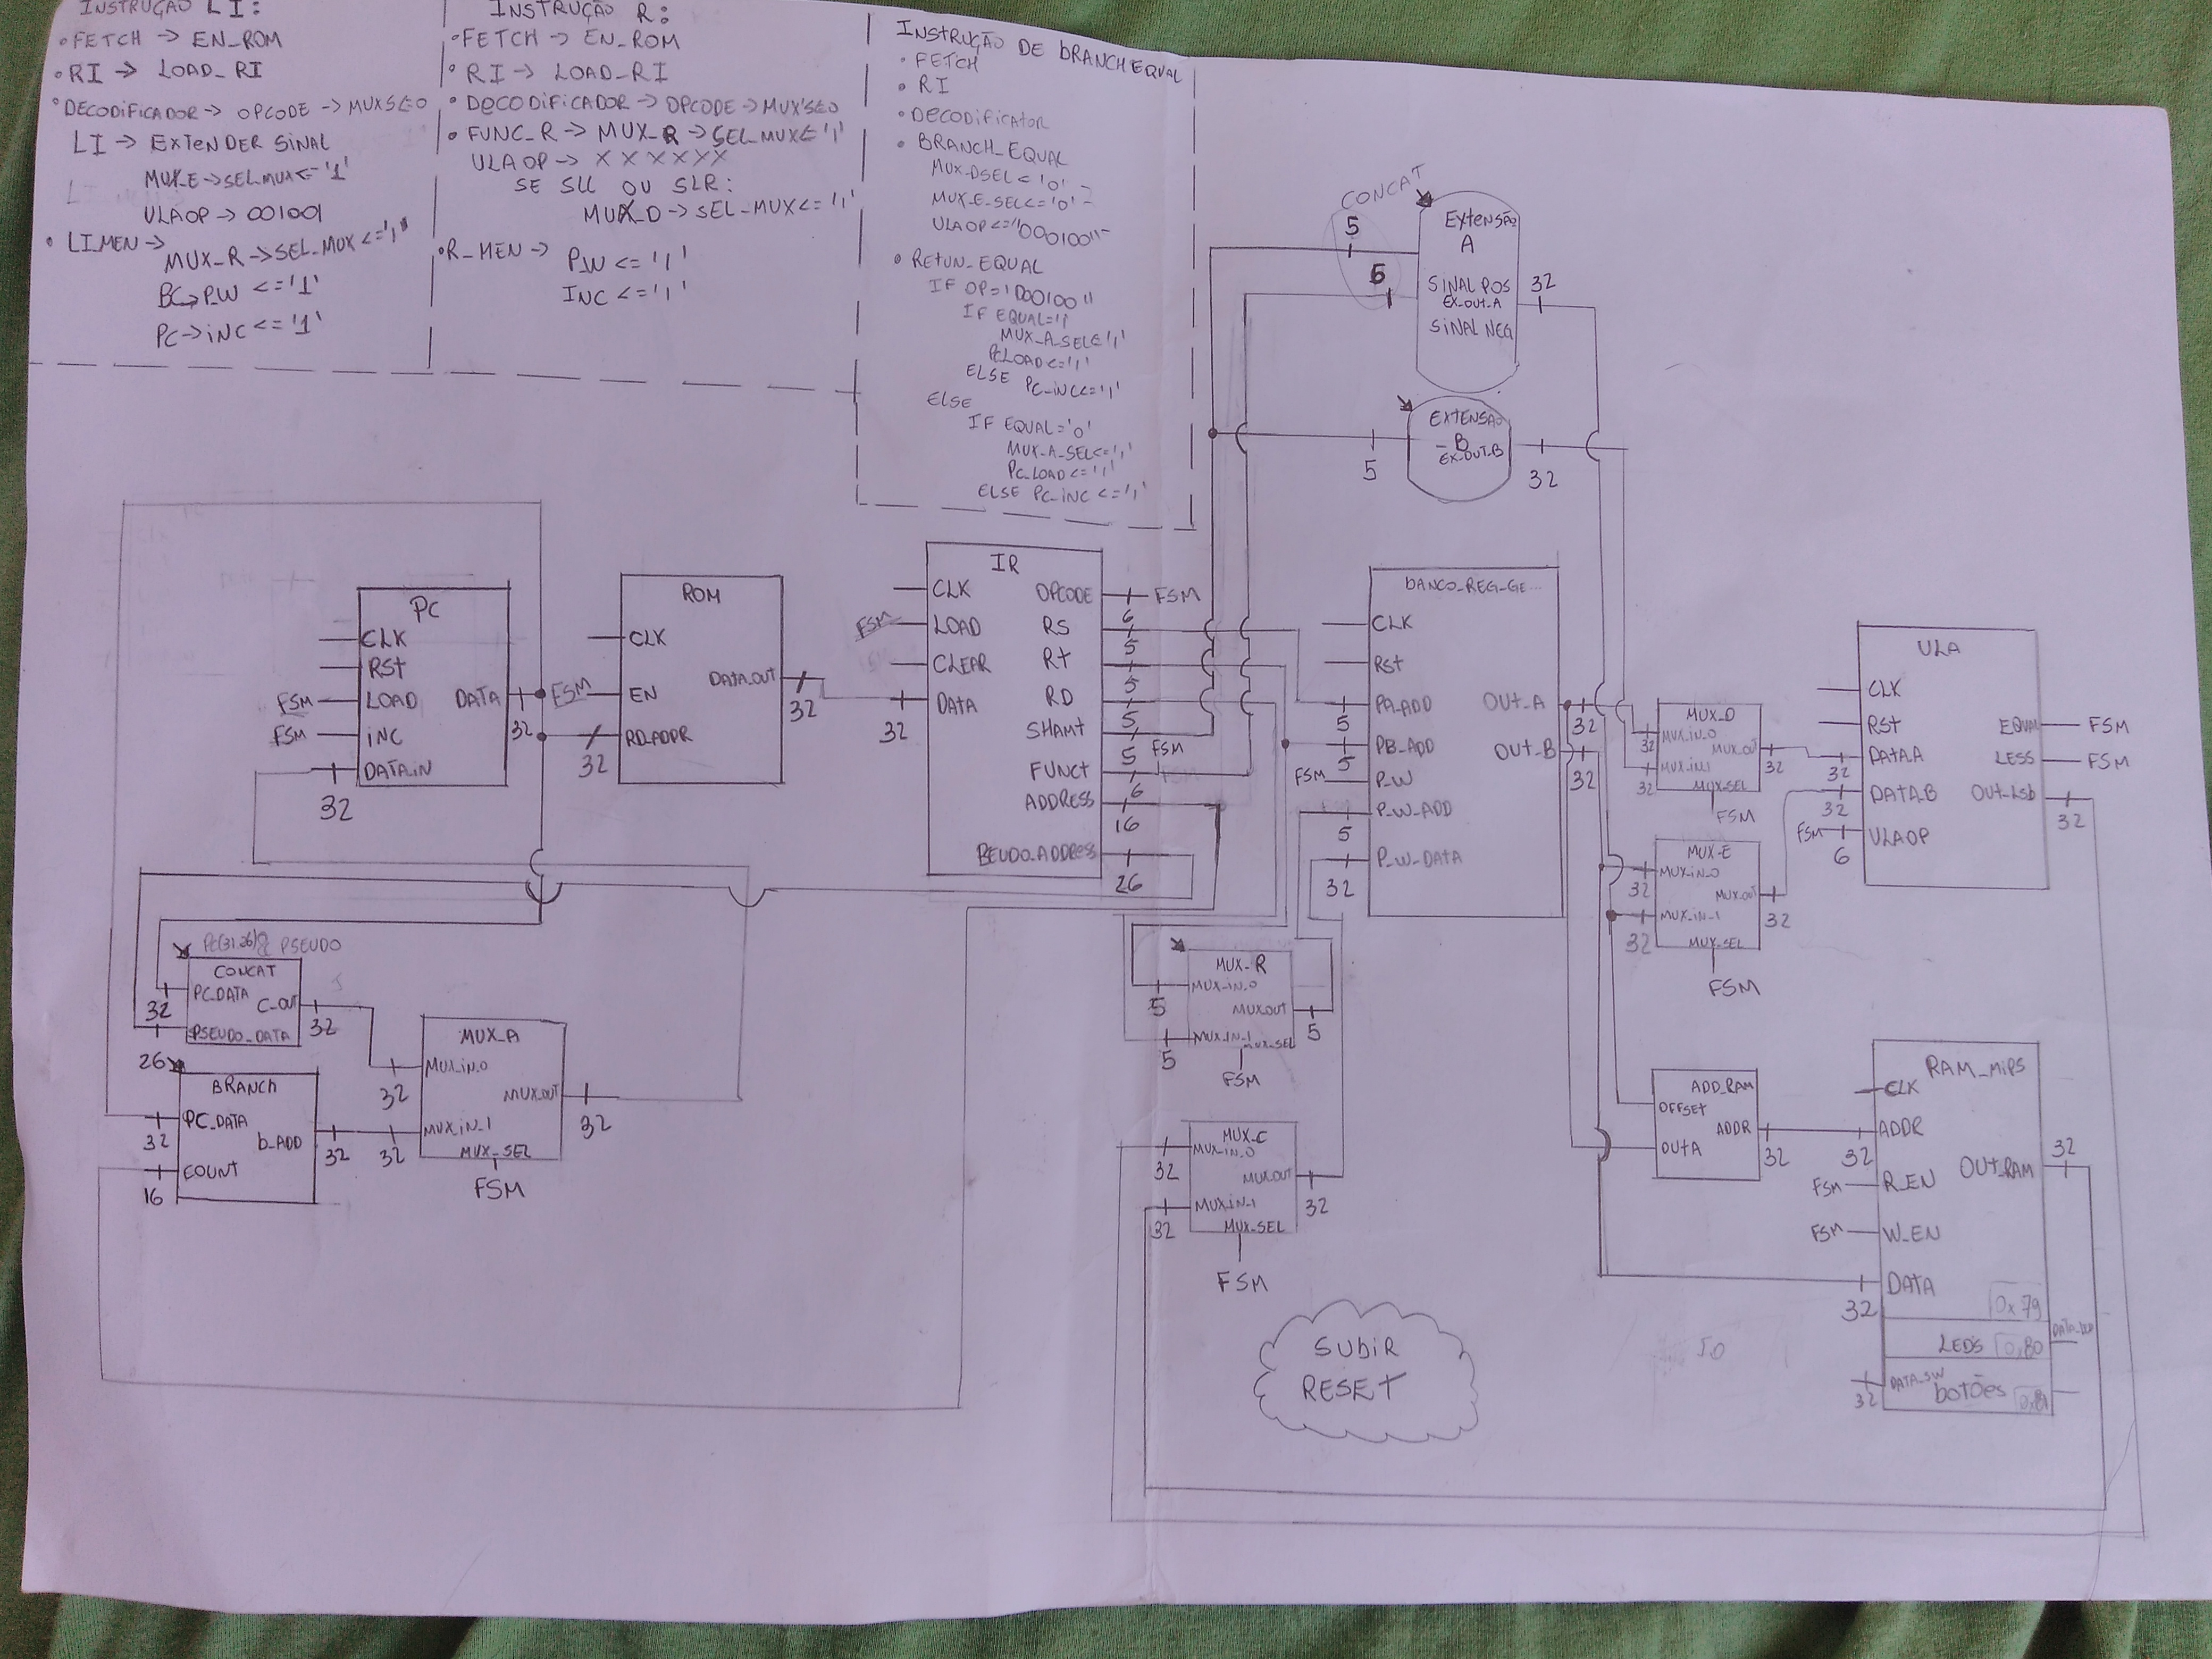 INSTRUÇÃO LI:
• FETCH -> EN_ROM
• RI -> LOAD_RI
• DECODIFICADOR -> OPCODE -> MUX
LI -> EXTENDER SINAL
MUX_E -> SEL_MUX <= '1'
ULAOP -> 001001
• LI_MEN ->
MUX_R -> SEL_MUX <= '1'
P_W <= '1'
PC -> INC <= '1'
INSTRUÇÃO R:
• FETCH -> EN_ROM
• RI -> LOAD_RI
• DECODIFICADOR -> OPCODE -> MUX
• FUNC_R -> MUX_R -> SEL_MUX <= '1'
ULAOP -> XXXXXX
SE SLL OU SLR:
MUX_D -> SEL_MUX <= '1'
• R_MEN -> P_W <= '1'
INC <= '1'
INSTRUÇÃO DE BRANCH EQUAL
• FETCH
• RI
• DECODIFICATOR
• BRANCH_EQUAL
MUX_DSEL <= '0'
MUX_E_SEL <= '0'
ULAOP <= "000100"
• RETUN_EQUAL
IF OP = "000100"
IF EQUAL = '1'
MUX_A_SEL <= '1'
PC_LOAD <= '1'
ELSE PC_INC <= '1'
ELSE
IF EQUAL = '0'
MUX_A_SEL <= '1'
PC_LOAD <= '1'
ELSE PC_INC <= '1'
CONCAT
5
EXTENSÃO
A
SINAL POS
EX_OUT_A
SINAL NEG
32
EXTENSÃO
B
EX_OUT_B
5
32
PC
CLK
RST
FSM LOAD
FSM INC
DATA_IN
32
DATA
32
ROM
CLK
FSM EN
RD_ADDR
32
DATA_OUT
32
IR
CLK
FSM LOAD
CLEAR
DATA
32
OPCODE FSM
6
RS
5
RT
5
RD
5
SHAMT
5 FSM
FUNCT
6
ADDRESS
16
PEUDO_ADDRESS
26
BANCO_REG_GE...
CLK
RST
PA_ADD
5
PB_ADD
5
FSM P_W
P_W_ADD
5
P_W_DATA
32
OUT_A
32
OUT_B
32
MUX_D
MUX_IN_0
32
MUX_IN_1
32
MUX_OUT
32
MUX_SEL
FSM
MUX-E
MUX_IN_0
32
MUX_IN_1
32
MUX_OUT
32
MUX_SEL
FSM
ULA
CLK
RST
DATA_A
32
DATA_B
32
FSM ULAOP
6
EQUAL FSM
LESS FSM
OUT_LSB
32
PC(31.26)& PSEUDO
CONCAT
PC_DATA
32
C_OUT
32
PSEUDO_DATA
26
BRANCH
PC_DATA
32
B_ADD
32
COUNT
16
MUX_A
MUX_IN_0
32
MUX_IN_1
32
MUX_OUT
32
MUX_SEL
FSM
MUX_R
MUX_IN_0
5
MUX_OUT
5
MUX_IN_1
5
MUX_SEL
FSM
MUX_C
MUX_IN_0
32
MUX_OUT
32
MUX_IN_1
32
MUX_SEL
FSM
ADD_RAM
OFFSET
ADDR
32
OUTA
RAM_MIPS
CLK
ADDR
32
FSM R_EN
FSM W_EN
DATA
32
OUT_RAM
32
0x79
LEDS 0x80
DATA_SW
32
botões 0x81
50
SUBIR
RESET